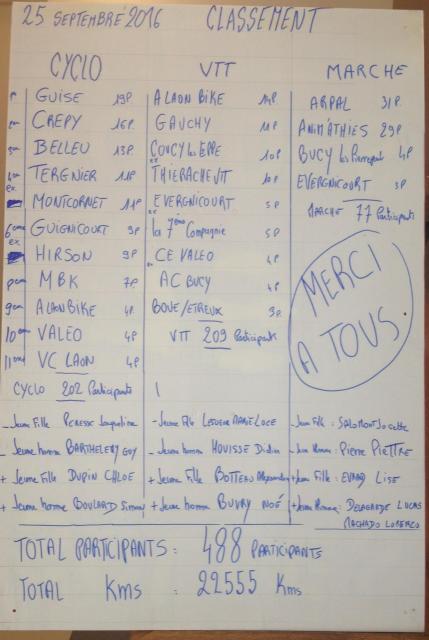 25 SEPTEMBRE 2016 CLASSEMENT
CYCLO
1er GUISE 19P
CREPY 16P.
BELLEU 13P.
TERGNIER 11P
ex. MONTCORNET 11P
6eme GUIGNICOURT 9P
ex HIRSON 9P
MBK 7P
9eme ALAONBIKE 4P.
10eme VALEO 4P
11eme VC LAON 4P
CYCLO 202 Participants
VTT
ALAON BIKE 14P
GAUCHY 11P
COUCY les EPPE 10P
THIERACHE VTT 10P
EVERGNICOURT 5P
la 7eme Compagnie 5P
CE VALEO 4P
AC BUCY 4P
BOUE/ETREUX 3P.
VTT 209 Participants
MARCHE
ARPAL 31P.
ANIM'ATHIES 29P
BUCY les Pierrepont 4P
EVERGNICOURT 3P
MARCHE 77 Participants
MERCI
A TOUS
- Jeune Fille PERESSE Jacqueline
- Jeune homme BARTHELERY GUY
+ Jeune Fille DUPIN CHLOE
+ Jeune homme BOULARD Simon
- Jeune Fille LEFEUER MARIE LUCE
- Jeune homme HOUISSE Didier
+ Jeune Fille BOTTEAU Alexandra
+ Jeune homme BUVRY NOÉ
- Jeune Fille : SALOMON Josette
- Jeune Homme : Pierre PIETTRE
+ Jeune Fille : EVRARD LISE
+ Jeune Homme : DELAGARDE LUCAS
MACHADO LORENZO
TOTAL PARTICIPANTS : 488 PARTICIPANTS
TOTAL KMS : 22555 Kms